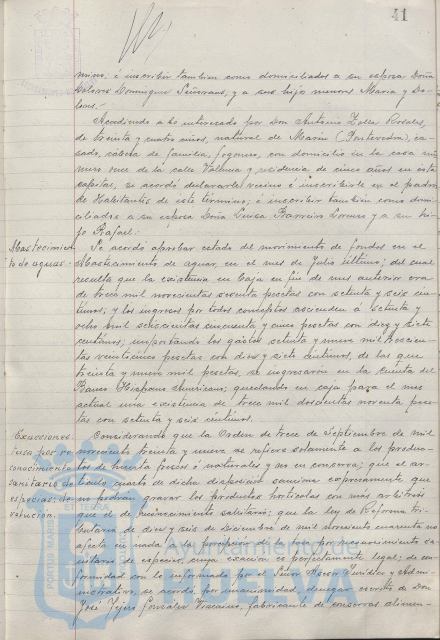 41
mino; é inscribir tambien como domiciliados a su esposa Doña
Dolores Dominguez Señorans, y a sus hijos menores Maria y Do-
lores.
Accediendo a lo interesado por Don Antonio
de treinta y cuatro años, natural de Marin (Pontevedra), ca-
sado, cabeza de familia, fogonero, con domicilio en la casa nú-
mero once de la calle Valencia y residencia de cinco años en esta
capital, se acordó declararle vecino é inscribirle en el padrón
de Habitantes de este término; é inscribir tambien como domi-
ciliados a su esposa Doña Luisa Barreiro Lorenzo y a su hi-
jo Rafael.
Abastecimien-
to de aguas.
Se acordó aprobar estado del movimiento de fondos en el
Abastecimiento de aguas, en el mes de Julio último; del cual
resulta que la existencia en Caja en fin de mes anterior era
de trece mil novecientas sesenta pesetas con setenta y seis cén-
timos; y los ingresos por todos conceptos ascienden á setenta y
ocho mil seiscientas cincuenta y cinco pesetas con diez y siete
céntimos; importando los gastos setenta y nueve mil trescien-
tas veinticinco pesetas con diez y siete céntimos, de las que
treinta y nueve mil pesetas, se ingresaron en la cuenta del
Banco Hispano Americano; quedando en caja para el mes
actual una existencia de trece mil doscientas noventa pese-
tas con setenta y seis céntimos.
Exacciones:
tasa por re-
conocimiento
sanitario de
especies: de-
volución.
Considerando que la Orden de trece de Septiembre de mil
novecientos treinta y nueve se refiere solamente a los produc-
tos de huerta frescos ó naturales y no en conserva; que el ar-
tículo cuarto de dicha disposición sanciona expresamente que
no podrán gravar los productos hortícolas con más arbitrios
que el de reconocimiento sanitario; que la Ley de Reforma tri-
butaria de diez y seis de Diciembre de mil novecientos cuarenta no
afecta en nada a la percepción de la tasa por reconocimiento sa-
nitario de especies, cuya exacción es perfectamente legal; de con-
formidad con lo informado por el Señor Asesor Jurídico y Admi-
nistrativo, se acordó, por unanimidad, denegar escrito de Don
José Tejero Gonzalez Vizcaino, fabricante de conservas alimen-
Ayuntamiento de
HUELVA